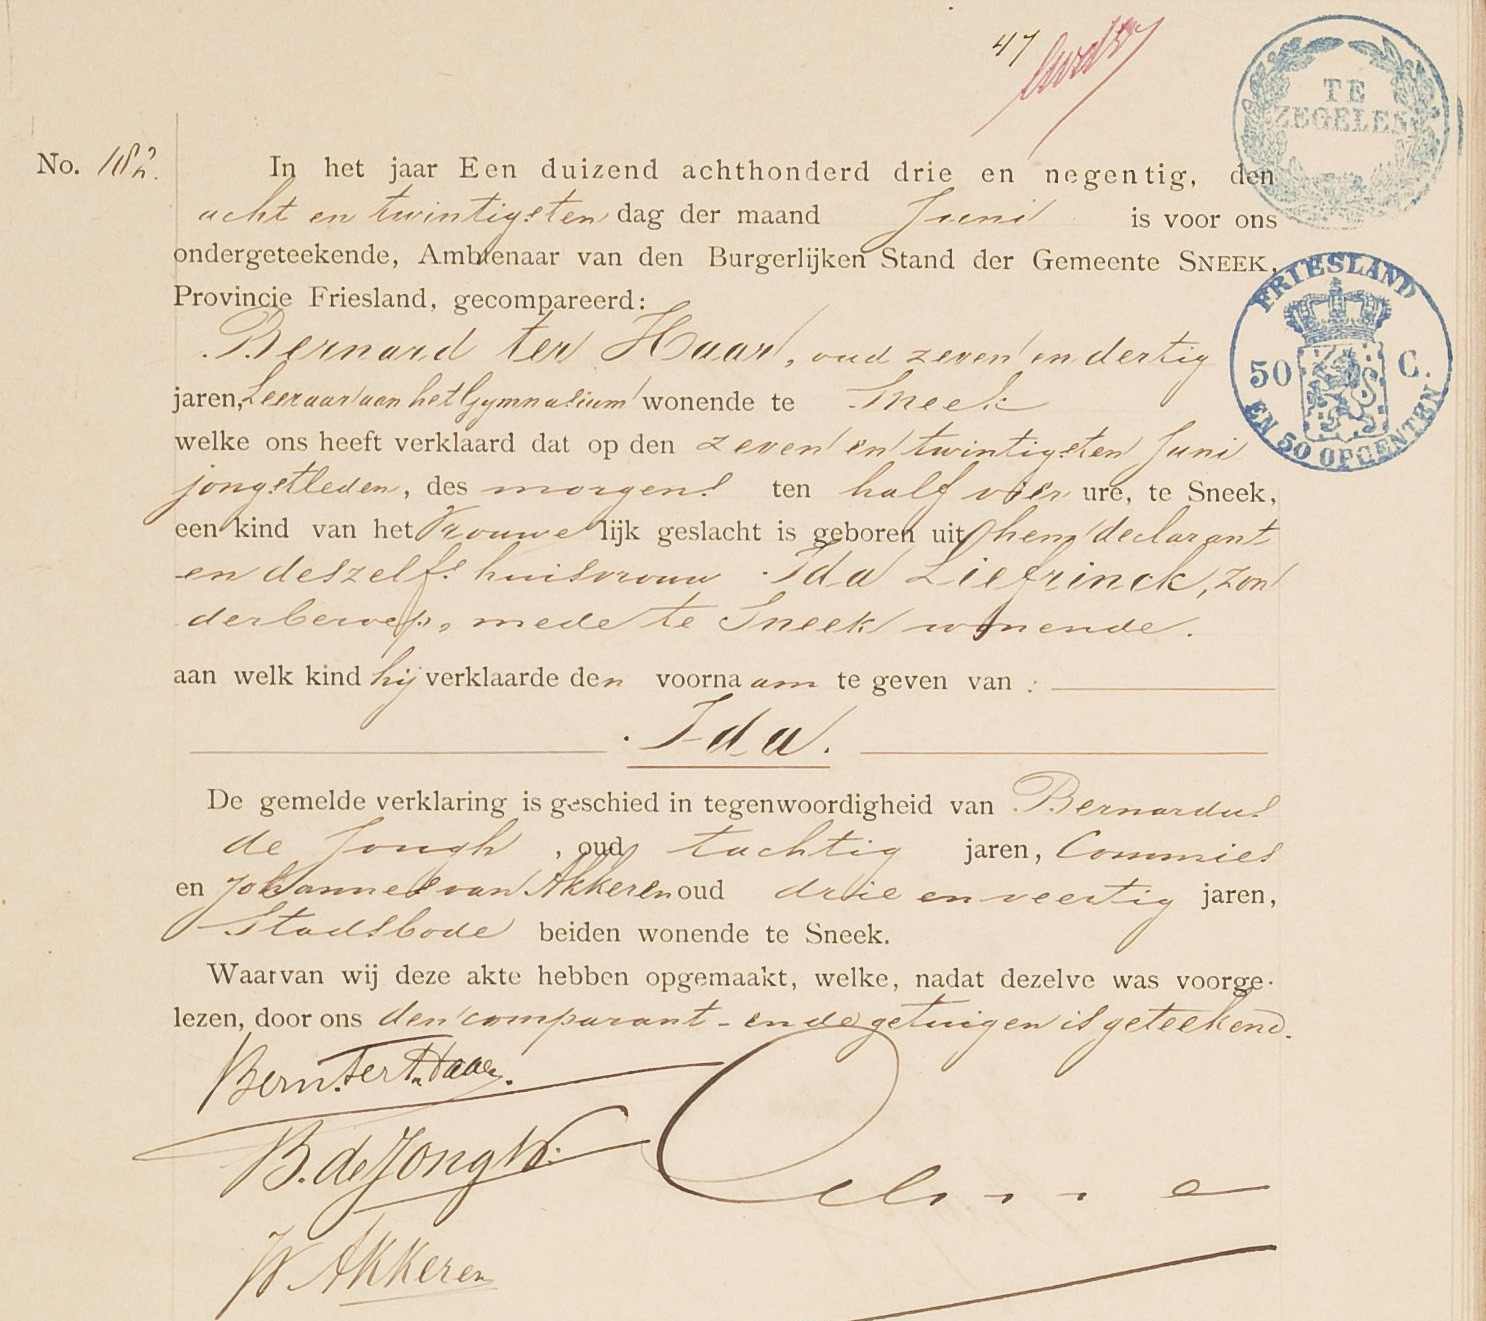 47
TE
ZEGELEN
No. 182.
In het jaar Een duizend achthonderd drie en negentig, den
acht en twintigsten dag der maand Juni is voor ons
ondergeteekende, Ambtenaar van den Burgerlijken Stand der Gemeente SNEEK,
Provincie Friesland, gecompareerd:
FRIESLAND
50 C.
EN 50 OPCENTEN
Bernard ter Haar, oud zeven en dertig
jaren, Leeraar aan het Gymnasium wonende te Sneek
welke ons heeft verklaard dat op den zeven en twintigsten Juni
jongstleden, des morgens ten half vier ure, te Sneek,
een kind van het Vrouwelijk geslacht is geboren uit hem declarant
en deszelfs huisvrouw Ida Liefrinck, zon
der beroep, mede te Sneek wonende.
aan welk kind hij verklaarde den voornaam te geven van :
Ida.
De gemelde verklaring is geschied in tegenwoordigheid van Bernardus
de Jongh, oud tachtig jaren, Commies
en Johannes van Akkeren oud drie en veertig jaren,
Stadsbode beiden wonende te Sneek.
Waarvan wij deze akte hebben opgemaakt, welke, nadat dezelve was voorge-
lezen, door ons den comparant en de getuigen is geteekend.
Bern. ter Haar.
B. de Jongh.
V Akkeren